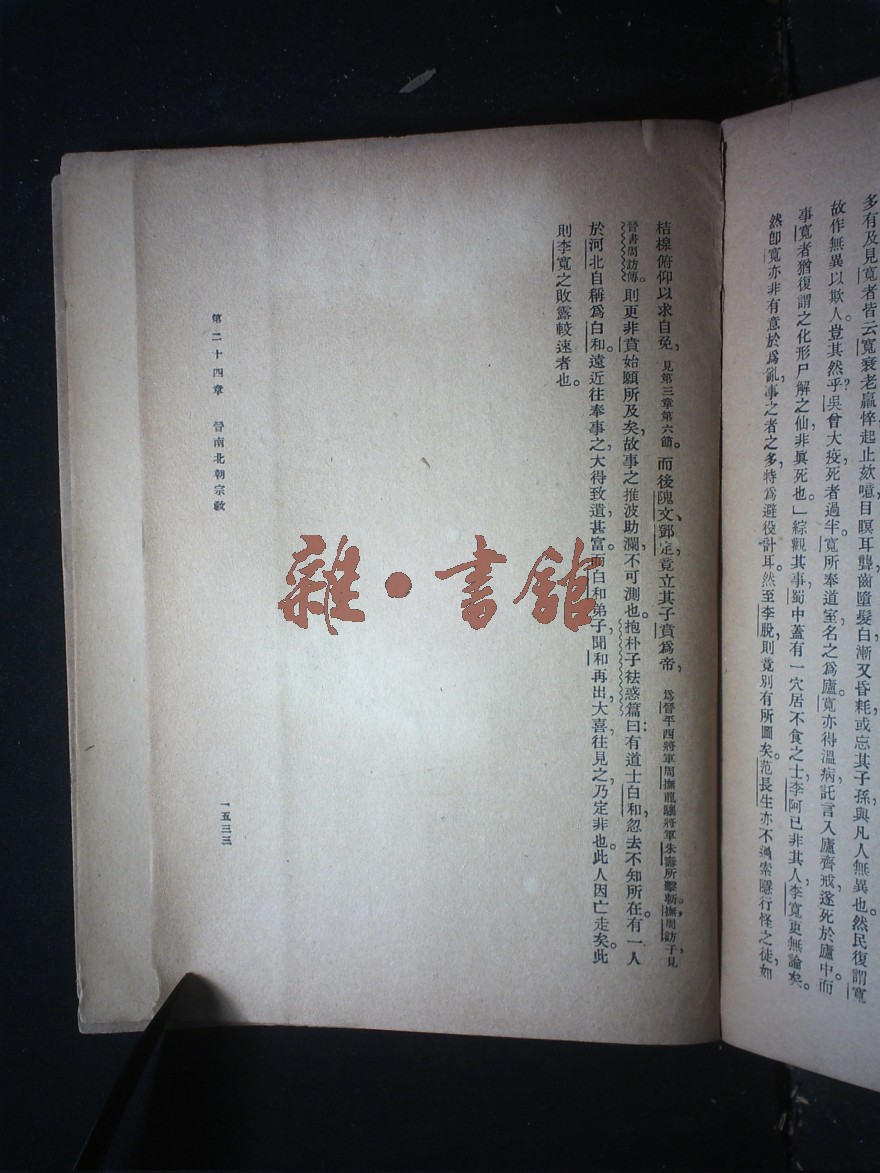 多有及見寬者皆云寬衰老羸悴起止欬噫目瞑耳聾齒墮髮白漸又昏耗或忘其子孫與凡人無異也。然民復謂寬
故作無異以欺人豈其然乎?吳曾大疫死者過半。寬所奉道室名之爲廬寬亦得溫病託言入廬齊戒遂死於廬中。而
事寬者猶復謂之化形尸解之仙非眞死也。」綜觀其事,蜀中蓋有一穴居不食之士,李阿已非其人,李寬更無論矣。
然卽寬亦非有意於爲亂,事之者之多,特爲避役計耳。然至李脫,則竟別有所圖矣。范長生亦不過索隱行怪之徒,如
桔橰俯仰以求自免,見第三章第六節。而後隗文、鄧定,竟立其子賁爲帝,爲晉平西將軍周撫龍驤將軍朱燾所擊斬。撫,周訪子,見
晉書周訪傳。則更非賁始願所及矣,故事之推波助瀾,不可測也。抱朴子祛惑篇曰:有道士白和,忽去不知所在。有一人
於河北自稱爲白和。遠近往奉事之,大得致遺甚富。而白和弟子聞和再出,大喜,往見之,乃定非也。此人因亡走矣。此
則李寬之敗露較速者也。
第二十四章 晉南北朝宗敎
一五三三
雜·書館